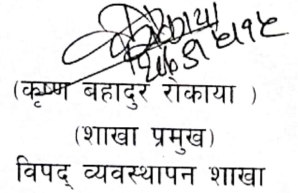 (कृष्ण बहादुर रोकाया )
(शाखा प्रमुख)
विपद् व्यवस्थापन शाखा